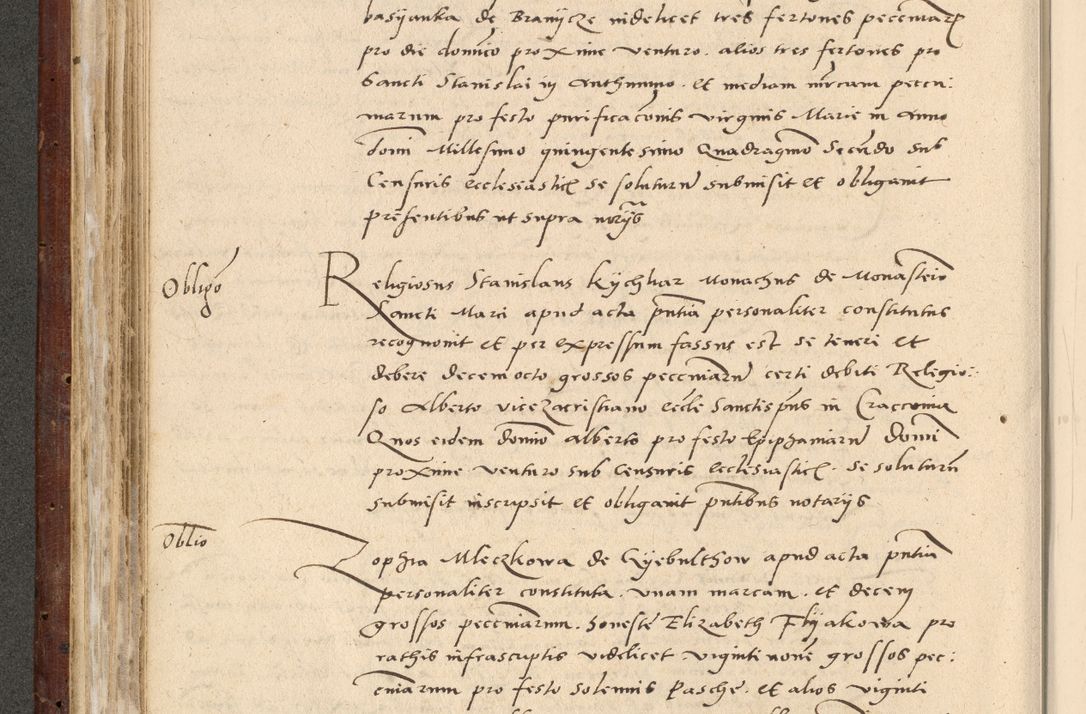 basyanka de Branycze videlicet tres fertones pecuniarum
pro die dominico proxime venturo. alios tres fertones pro
Sancti Stanislai in Anthumno. et mediam mrcam pecu:
niarum pro festo purificaconis virginis Marie in Anno
Domi Millesimo quingentesimo Quadragmo Secundo sub
Censuris ecclesiasticis se soluturum submisit et obligauit
presentibus ut supra norys
Obligo
Religiosus Stanislaus Kychhar Monachus de Monasterio
Sancti Marci apud acta pntia personaliter constitutus
recognouit et per expressum fassus est se teneri et
debere decemocto grossos pecuniarum certi debiti Religio:
so Alberto vicezacristiano eccle Sanctispus in Cracouia
Quos eidem domino Alberto pro festo Epiphaniarum Domi
proxime venturo sub Censuris ecclesiasticis se soluturum
submisit inscripsit et obligauit pntibus notarys
Oblio
Zophia Mleczkowa de Gyebulthow apud acta pntia
personaliter constituta. vnam marcam. et decem
grossos pecuniarum. honeste Elizabeth Flyakowa pro
rathis infrascriptis videlicet viginti noue grossos pec:
cuniarum pro festo solennis Pasche. et alios viginti